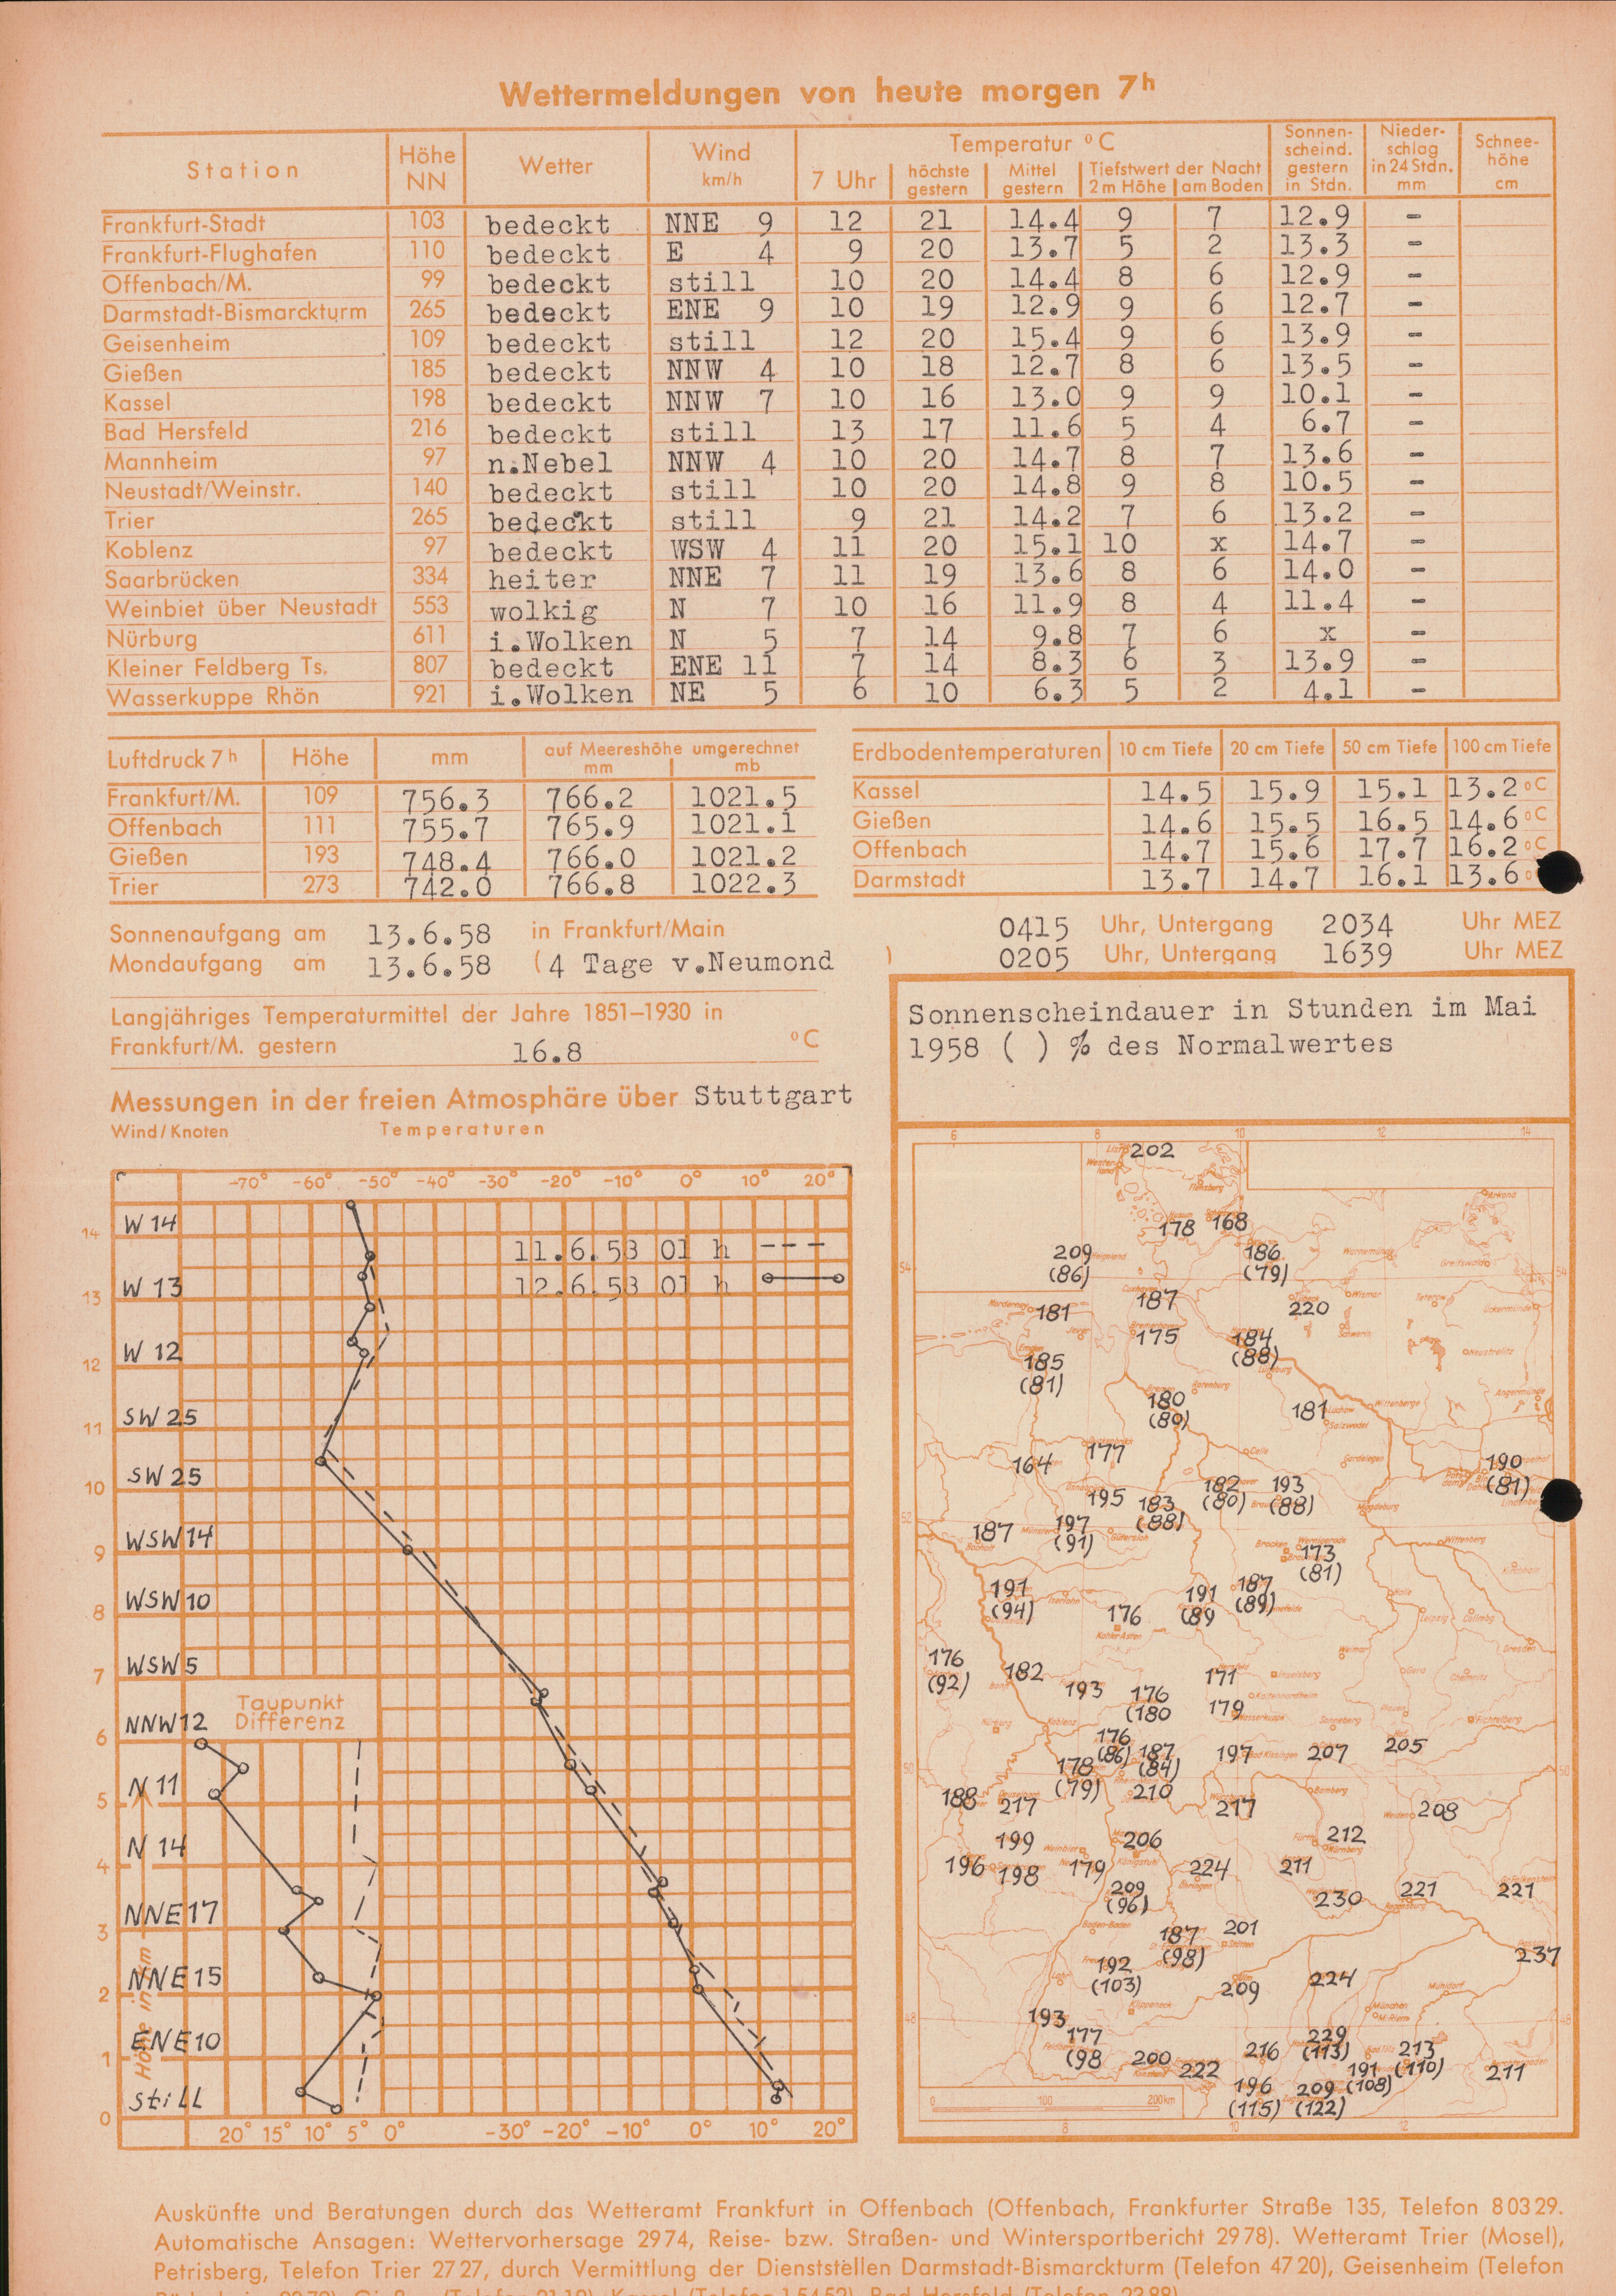 Wettermeldungen von heute morgen 7h
Station Höhe NN Wetter Wind km/h Temperatur °C 7 Uhr höchste gestern Mittel gestern Tiefstwert der Nacht 2 m Höhe am Boden Sonnen-scheind. gestern in Stdn. Nieder-schlag in 24 Stdn. mm Schnee-höhe cm
Frankfurt-Stadt 103 bedeckt NNE 9 12 21 14.4 9 7 12.9 -
Frankfurt-Flughafen 110 bedeckt E 4 9 20 13.7 5 2 13.3 -
Offenbach/M. 99 bedeckt still 10 20 14.4 8 6 12.9 -
Darmstadt-Bismarckturm 265 bedeckt ENE 9 10 19 12.9 9 6 12.7 -
Geisenheim 109 bedeckt still 12 20 15.4 9 6 13.9 -
Gießen 185 bedeckt NNW 4 10 18 12.7 8 6 13.5 -
Kassel 198 bedeckt NNW 7 10 16 13.0 9 9 10.1 -
Bad Hersfeld 216 bedeckt still 13 17 11.6 5 4 6.7 -
Mannheim 97 n.Nebel NNW 4 10 20 14.7 8 7 13.6 -
Neustadt/Weinstr. 140 bedeckt still 10 20 14.8 9 8 10.5 -
Trier 265 bedeckt still 9 21 14.2 7 6 13.2 -
Koblenz 97 bedeckt WSW 4 11 20 15.1 10 x 14.7 -
Saarbrücken 334 heiter NNE 7 11 19 13.6 8 6 14.0 -
Weinbiet über Neustadt 553 wolkig N 7 10 16 11.9 8 4 11.4 -
Nürburg 611 i.Wolken N 5 7 14 9.8 7 6 x -
Kleiner Feldberg Ts. 807 bedeckt ENE 11 7 14 8.3 6 3 13.9 -
Wasserkuppe Rhön 921 i.Wolken NE 5 6 10 6.3 5 2 4.1 -
Luftdruck 7h Höhe mm auf Meereshöhe umgerechnet mm mb
Frankfurt/M. 109 756.3 766.2 1021.5
Offenbach 111 755.7 765.9 1021.1
Gießen 193 748.4 766.0 1021.2
Trier 273 742.0 766.8 1022.3
Erdbodentemperaturen 10 cm Tiefe 20 cm Tiefe 50 cm Tiefe 100 cm Tiefe
Kassel 14.5 15.9 15.1 13.2 °C
Gießen 14.6 15.5 16.5 14.6 °C
Offenbach 14.7 15.6 17.7 16.2 °C
Darmstadt 13.7 14.7 16.1 13.6 °
Sonnenaufgang am 13.6.58 in Frankfurt/Main 0415 Uhr, Untergang 2034 Uhr MEZ
Mondaufgang am 13.6.58 (4 Tage v.Neumond ) 0205 Uhr, Untergang 1639 Uhr MEZ
Langjähriges Temperaturmittel der Jahre 1851–1930 in
Frankfurt/M. gestern 16.8 °C
Messungen in der freien Atmosphäre über Stuttgart
Wind/Knoten Temperaturen
-70° -60° -50° -40° -30° -20° -10° 0° 10° 20°
14 W 14
11.6.58 01 h
12.6.58 01 h
13 W 13
12 W 12
11 SW 25
10 SW 25
9 WSW 14
8 WSW 10
7 WSW 5
Taupunkt
Differenz
6 NNW 12
5 N 11
4 N 14
3 NNE 17
2 NNE 15
1 ENE 10
0 still
Höhe in km
20° 15° 10° 5° 0° -30° -20° -10° 0° 10° 20°
Sonnenscheindauer in Stunden im Mai
1958 ( ) % des Normalwertes
6 8 10 12 14
202
178 168
209 (86) 186 (79)
181 187 220
175 184 (88)
185 (81)
180 (80) 181
164 177 190 (81)
195 183 (88) 182 (80) 193 (88)
187 197 (91)
173 (81)
191 (94) 176 191 (89 187 (89)
176 (92) 182 193 176 (180 171
179
176 (86) 187 (84) 197 207 205
178 (79) 210
188 217 217 208
199 206 212
196 198 179 224 211
209 (96) 230 221 221
187 (98) 201 237
192 (103) 209 224
193
177 (98 200 222 216 229 (113) 213 (110)
191 (108) 211
196 (115) 209 (122)
0 100 200 km
8 10 12
Auskünfte und Beratungen durch das Wetteramt Frankfurt in Offenbach (Offenbach, Frankfurter Straße 135, Telefon 8 03 29.
Automatische Ansagen: Wettervorhersage 29 74, Reise- bzw. Straßen- und Wintersportbericht 29 78). Wetteramt Trier (Mosel),
Petrisberg, Telefon Trier 27 27, durch Vermittlung der Dienststellen Darmstadt-Bismarckturm (Telefon 47 20), Geisenheim (Telefon